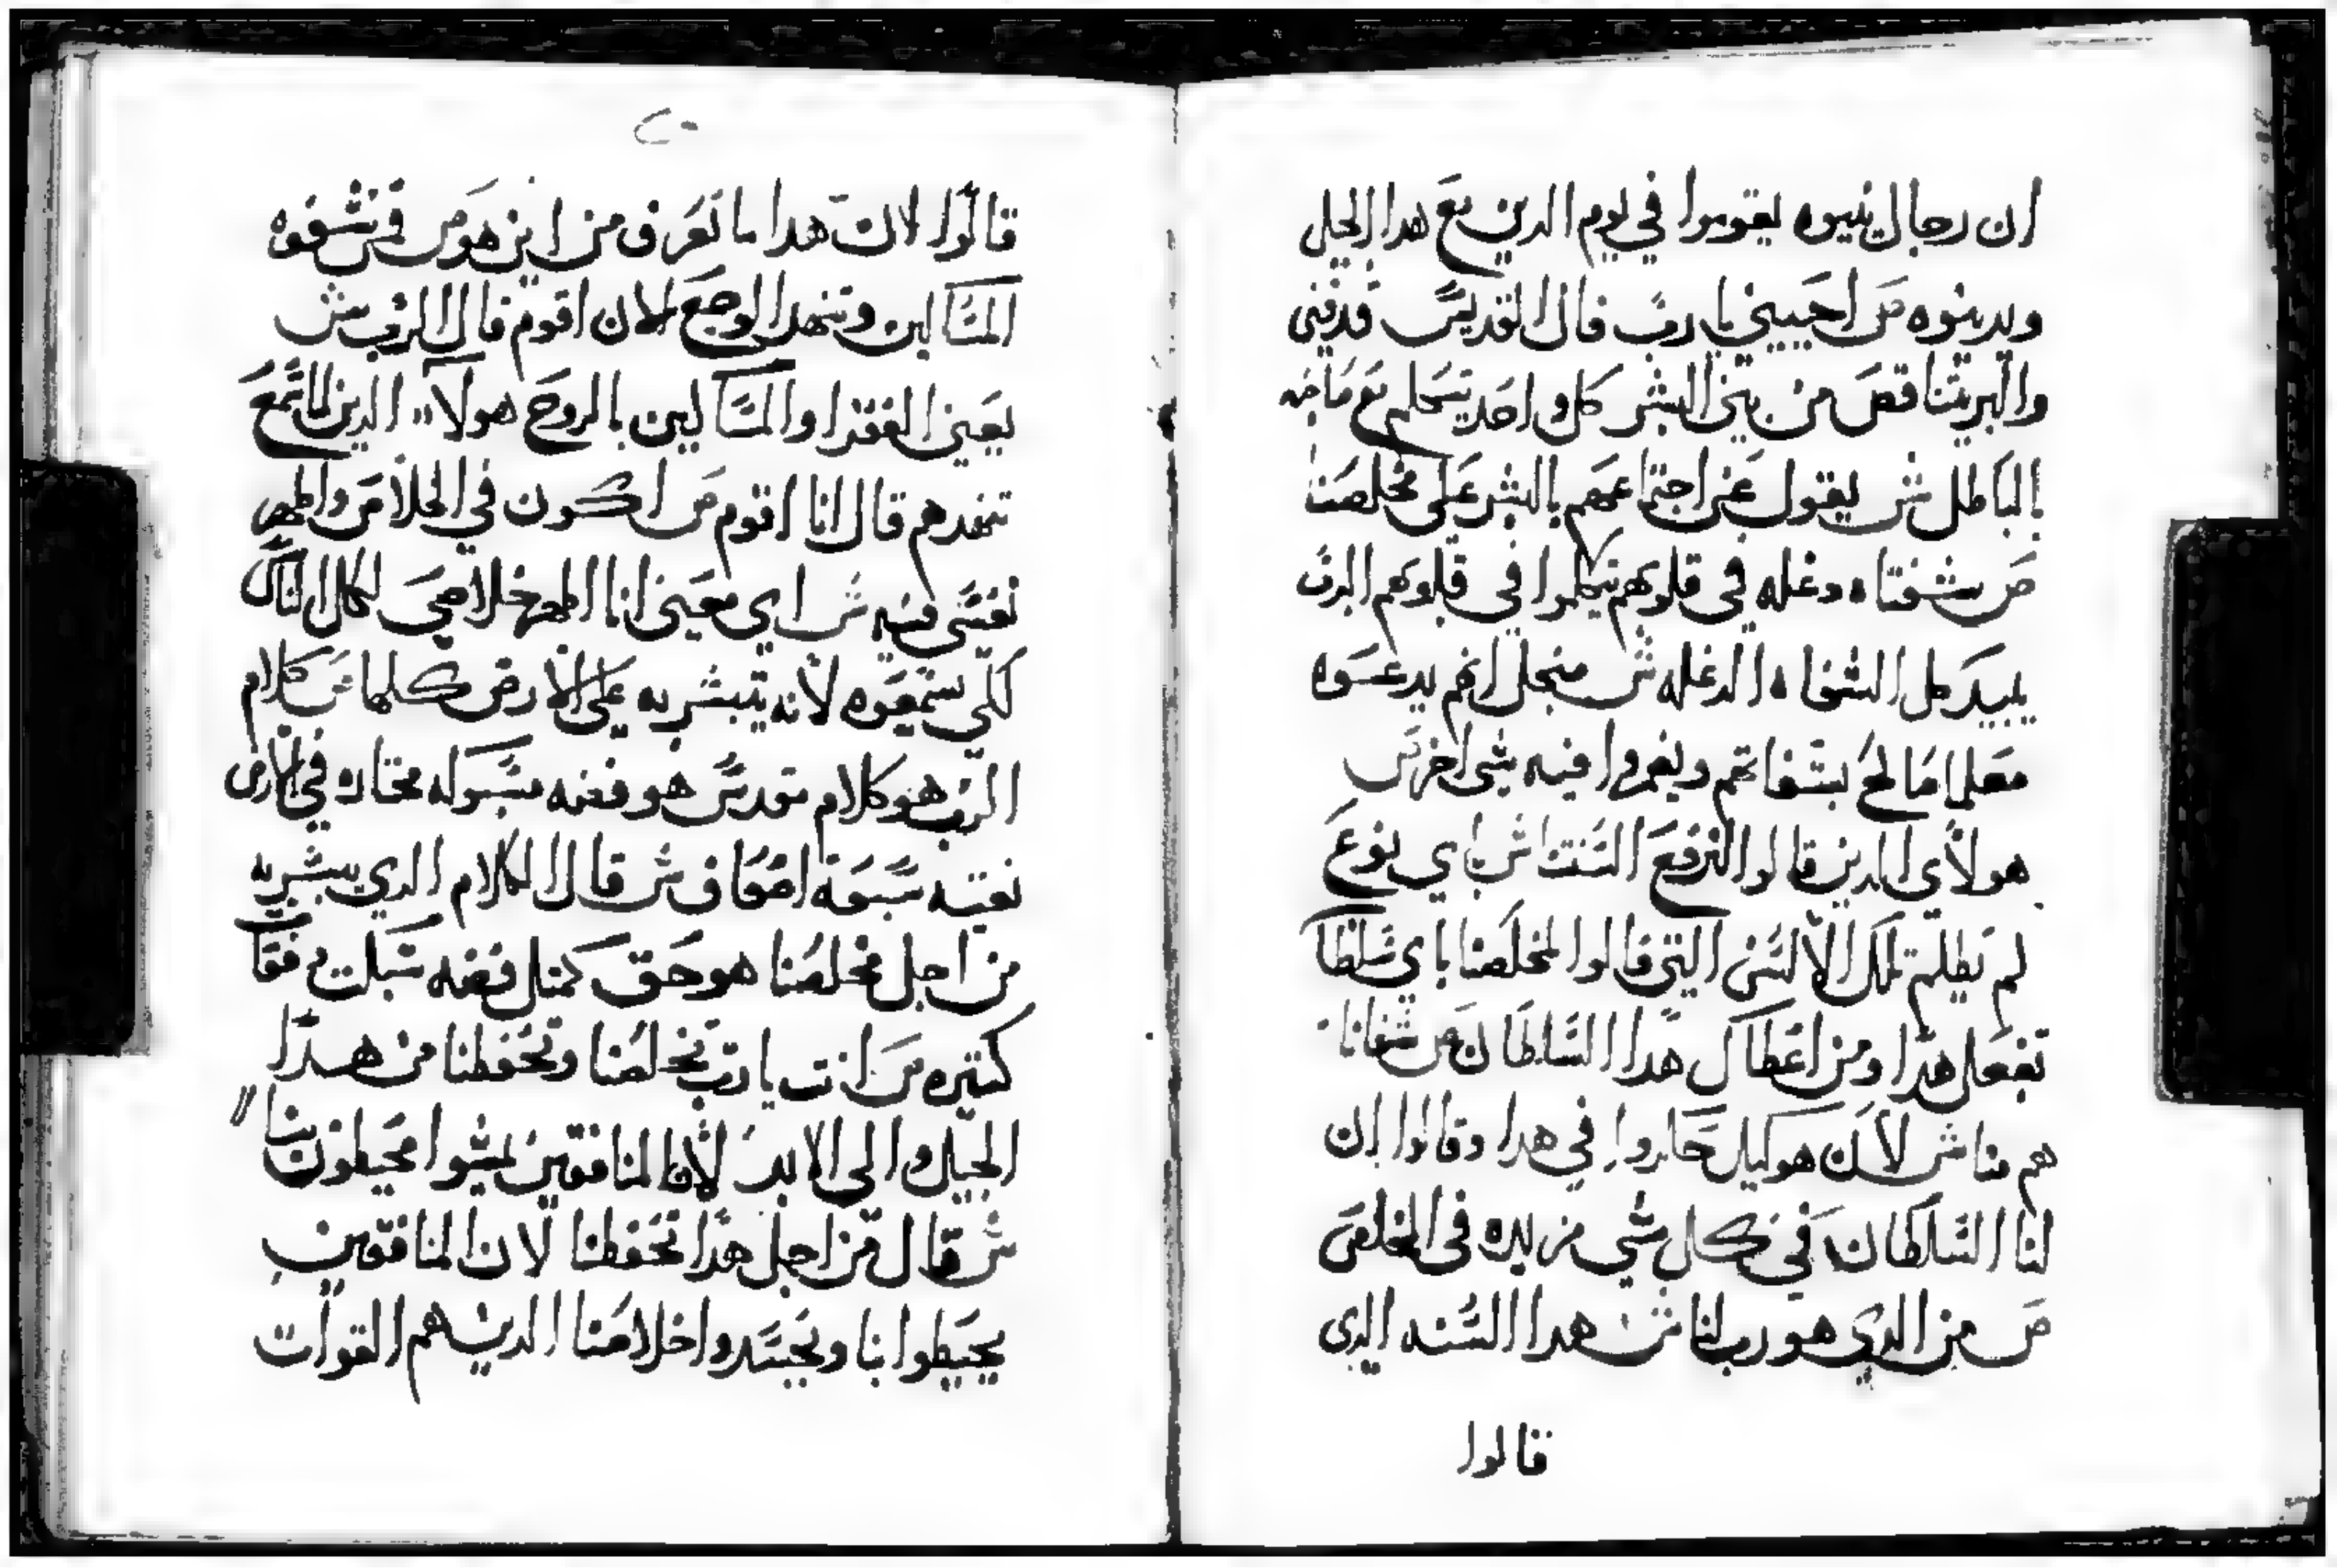 ان رجال نينوه يقوموا في يوم الدين مع هدا الجيل
ويدينوه ص احييني يا رب فان القديس قد فنى
والبر يتناقص من بني البشر كل واحد يتكلم مع صاحبه
بالباطل ش يقول عن اجتماعهم بالشر على مخلصنا
ص شفتاه دغله في قلوبهم تيكلموا في قلوبهم الرب
يبيد كل الشفاه الدغله ش منجل انهم يدعوه
معلما صالح بشفاتهم ويضمروا فيه شي اخر ص
هولاي الدين قالوا نرفع السنتنا ش باي نوع
لم تظلم تلك الالسن التي قالوا لمخلصنا باي سلطان
تفعل هدا ومن اعطاك هدا السلطان ص شفاتنا
هم منا ش لان هو كيل حاروا في هدا وقالوا ان
لنا السلطان في كل شي نريده في الخلقه
ص من الدي هو رب لنا ش هدا السند الدي
قالوا
٢٠
قالوا لان هدا ما نعرف من اين هو ص من شقوه
المساكين وتنهد الوجع الان اقوم قال الرب ش
يعني الفقرا والمساكين بالروح هولاء الدين لما سمع
تنهدهم قال انا اقوم ص اكون في الخلاص واظهر
نفسي فيه ش اي معنى انا اظهر خلاصي لكل الناس
لكي يسمعوه لانه يتبشر به على الارض كلها ص كلام
الرب هو كلام مقدس هو فضه مسبوكه مختاره في الارض
نقيه سبعة اضعاف ش قال الكلام الدي يبشر به
من اجل مخلصنا هو حق كمثل فضه سبكت دفقات
كتيره ص انت يا رب تخلصنا وتحفظنا من هدا
الجيل والى الابد لان المنافقين يمشوا محيطون بنا
ش قال من اجل هدا تحفظنا لان المنافقين
يحيطوا بنا ويحسدوا خلاصنا الدين هم القوات